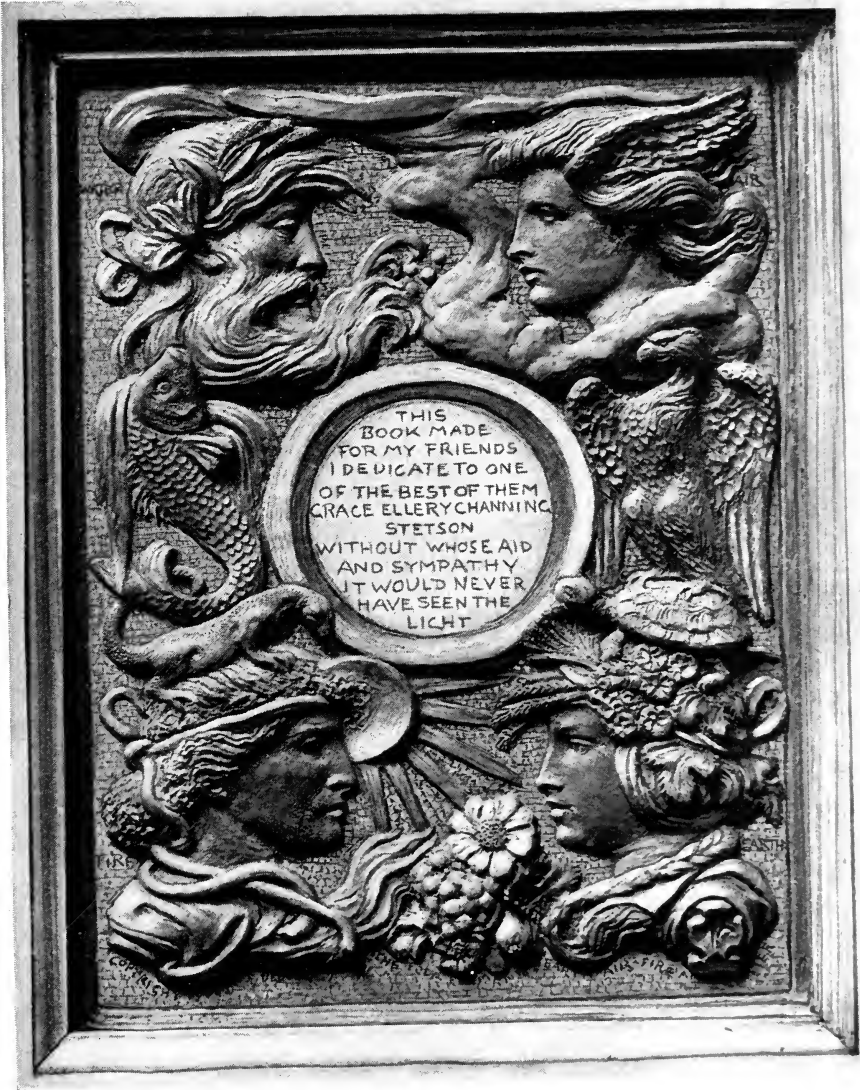 WATER
AIR
THIS
BOOK MADE
FOR MY FRIENDS
I DEDICATE TO ONE
OF THE BEST OF THEM
GRACE ELLERY CHANNING
STETSON
WITHOUT WHOSE AID
AND SYMPATHY
IT WOULD NEVER
HAVE SEEN THE
LIGHT
FIRE
EARTH